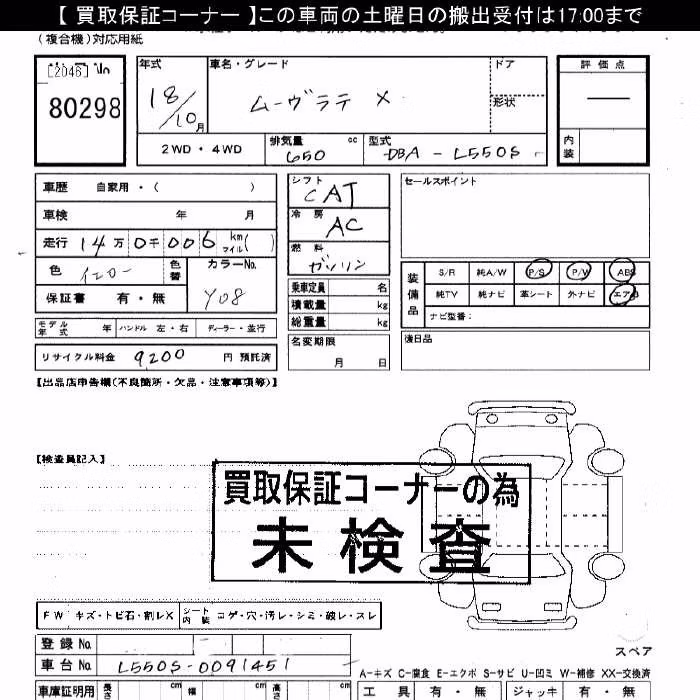 【 買取保証コーナー 】この車両の土曜日の搬出受付は17:00まで
(複合機)対応用紙
[2046] No
80298
年式 18/10月
車名・グレード
ムーヴラテ X
ドア
形状
評価点
―
内装
2WD・4WD
排気量 650 cc
型式 DBA-L550S
車歴 自家用・( )
車検 年 月
走行 14万0千006 km マイル( )
色 イエロー 色替
カラーNo. Y08
保証書 有・無
モデル年式 年 ハンドル 左・右 ディーラー・並行
リサイクル料金 9200 円 預託済
シフト CAT
冷房 AC
燃料 ガソリン
乗車定員 名
積載量 kg
総重量 kg
名変期限 月 日
セールスポイント
装備品
S/R 純A/W P/S P/W ABS
純TV 純ナビ 革シート 外ナビ エアB
ナビ型番:
後日品
【出品店申告欄(不良箇所・欠品・注意事項等)】
【検査員記入】
買取保証コーナーの為
未検査
FW キズ・トビ石・割レX シート内装 コゲ・穴・汚レ・シミ・破レ・スレ
登録No.
車台No. L550S-0091451
スペア
A-キズ C-腐食 E-エクボ S-サビ U-凹ミ W-補修 XX-交換済
車庫証明用 長さ cm 幅 cm 高さ cm
工具 有・無 ジャッキ 有・無